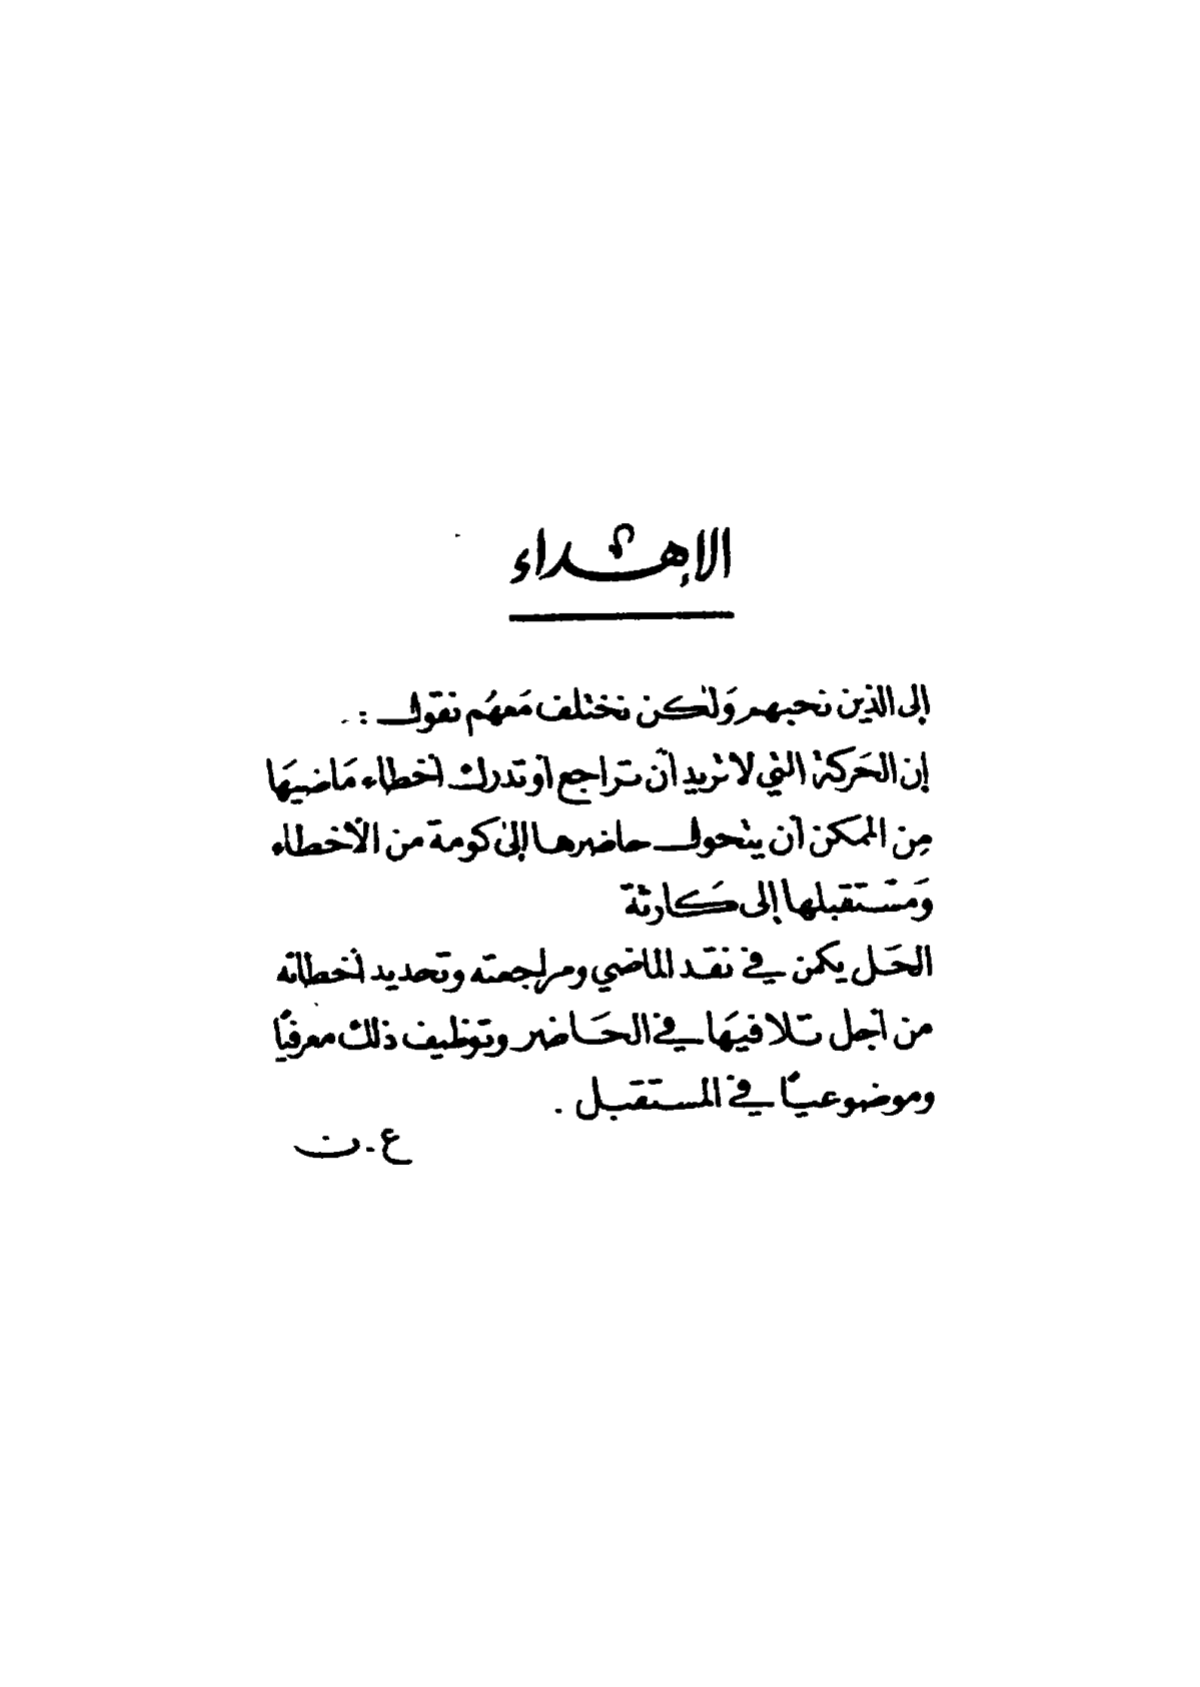 الإهداء
إلى الذين نحبهم وَلكن نختلف مَعهُم نقول :
إن الحَركة التي لا تريد أن تراجع أو تدرك أخطاء مَاضيهَا
مِن الممَكن أن يتحول حاضرها إلى كومة من الأخطاء
وَمستقبلها إلى كَارثة
الحَل يكمن في نقد الماضي ومراجعته وتحديد أخطائه
من أجل تلافيهَا في الحَاضر وتوظيف ذلك معرفيًا
وموضوعيًا في المستقبل .
ع . ن